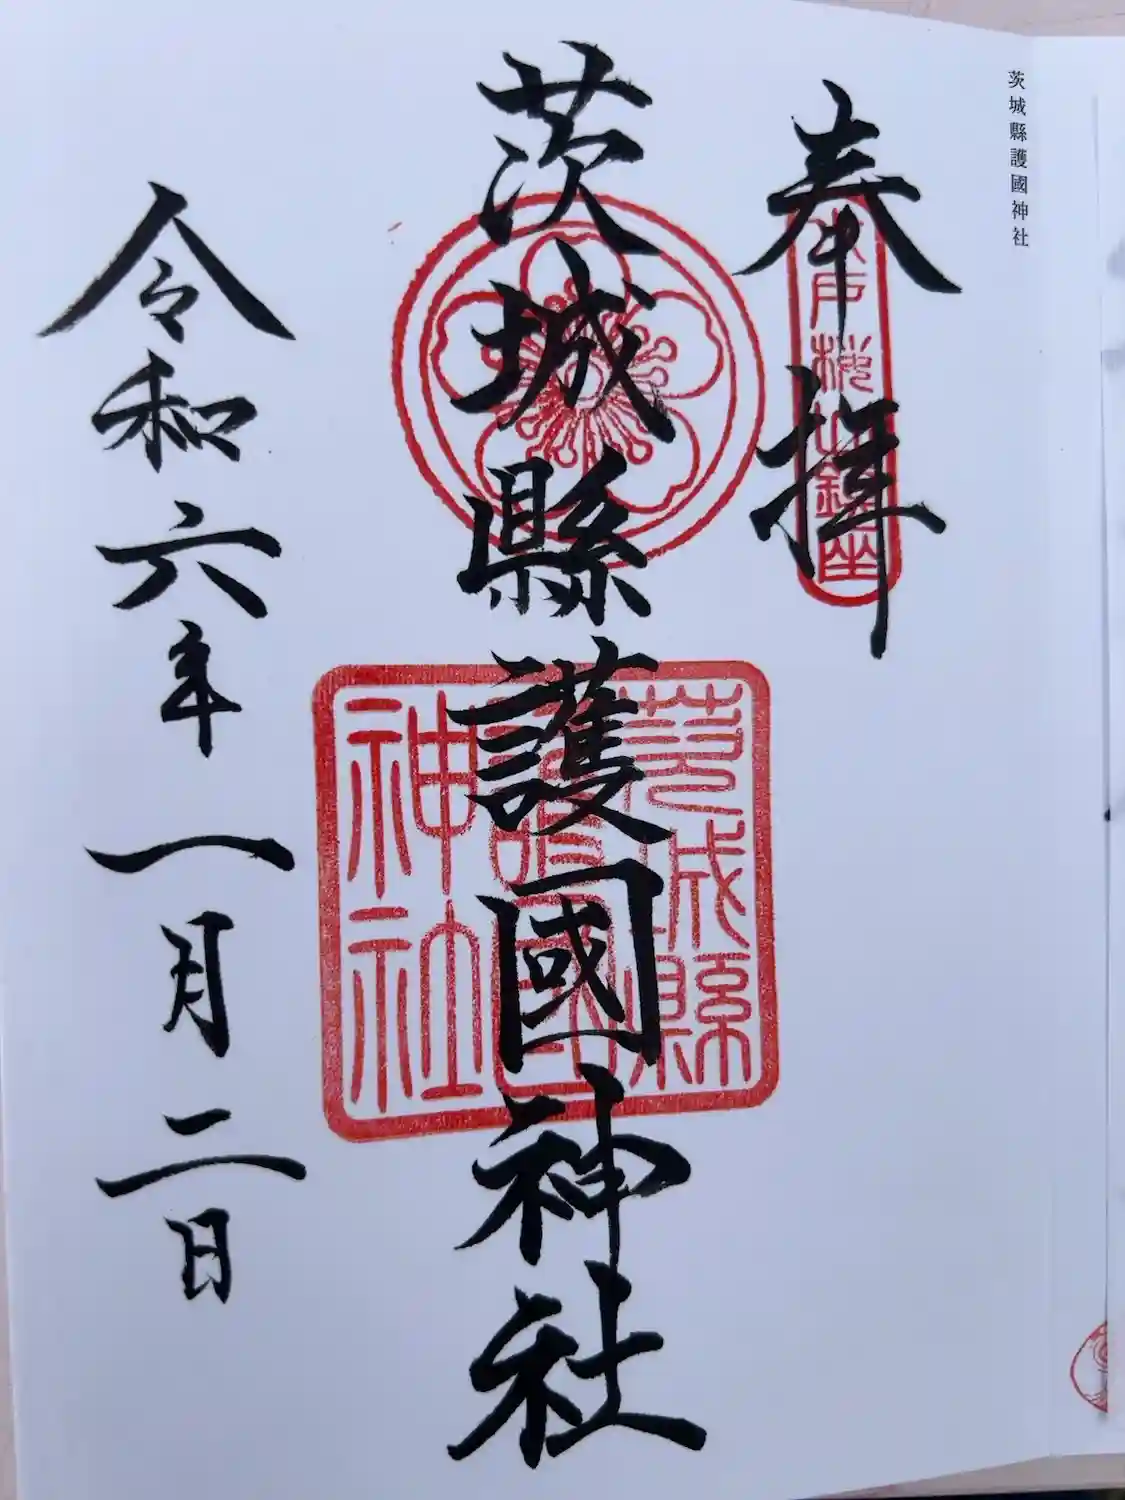 茨城縣護國神社
奉拝
水戸桜山鎮座
茨城縣護國神社
茨城縣
護國
神社
令和六年一月二日